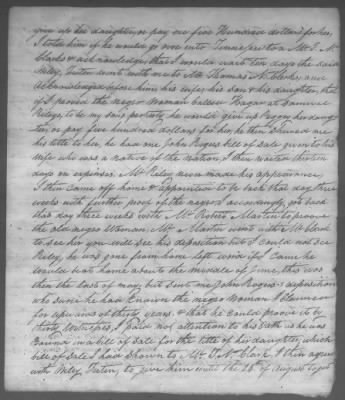 give up her daughter, or pay one five Hundred dollars for her,
I told him if he would go over into Tennessee to a Mr. T. N.
Clark & acknowledge that I would wait ten days he did
Wiley Tuten went with me to Mr Thomas N. Clarkes, and
Acknowledged before him, his wife, his son & his daughter, that
if I proved the negro Woman Called Hagar at Samuel
Rileys, to be my said property he would give up Peggy her daugh
ter, or pay five hundred dollars for her, he then showed me
his title to her, he had one John Rogers bill of Sale given to his
wife who was a native of the nation, I then waited thirteen
days on expenses, Mr Riley never made his appearance.
I then came off home & appointed to be back that day three
weeks with further proof of the negroes accordingly, got back
that day three weeks with Mr Robert Martin to proove
the old negro Woman, Mr Martin went with Mr Clark
to see her you will see his deposition but I could not see
Riley, he was gone from home left word if I came he
would be at home about the middle of June, this was
then the last of may, but sent me John Rogers's deposition
who swore he had known the negro Woman I claimed
for upwards of thirty years, & that he could proove it by
thirty witnesses, I paid not attention to his Oath as he was
Bound in a bill of Sale for the title of her daughter, which
bill of Sale I had shown to Mr T. N. Clark. I then agreed
with Wiley Tuten, to give him until the 25. of August to get